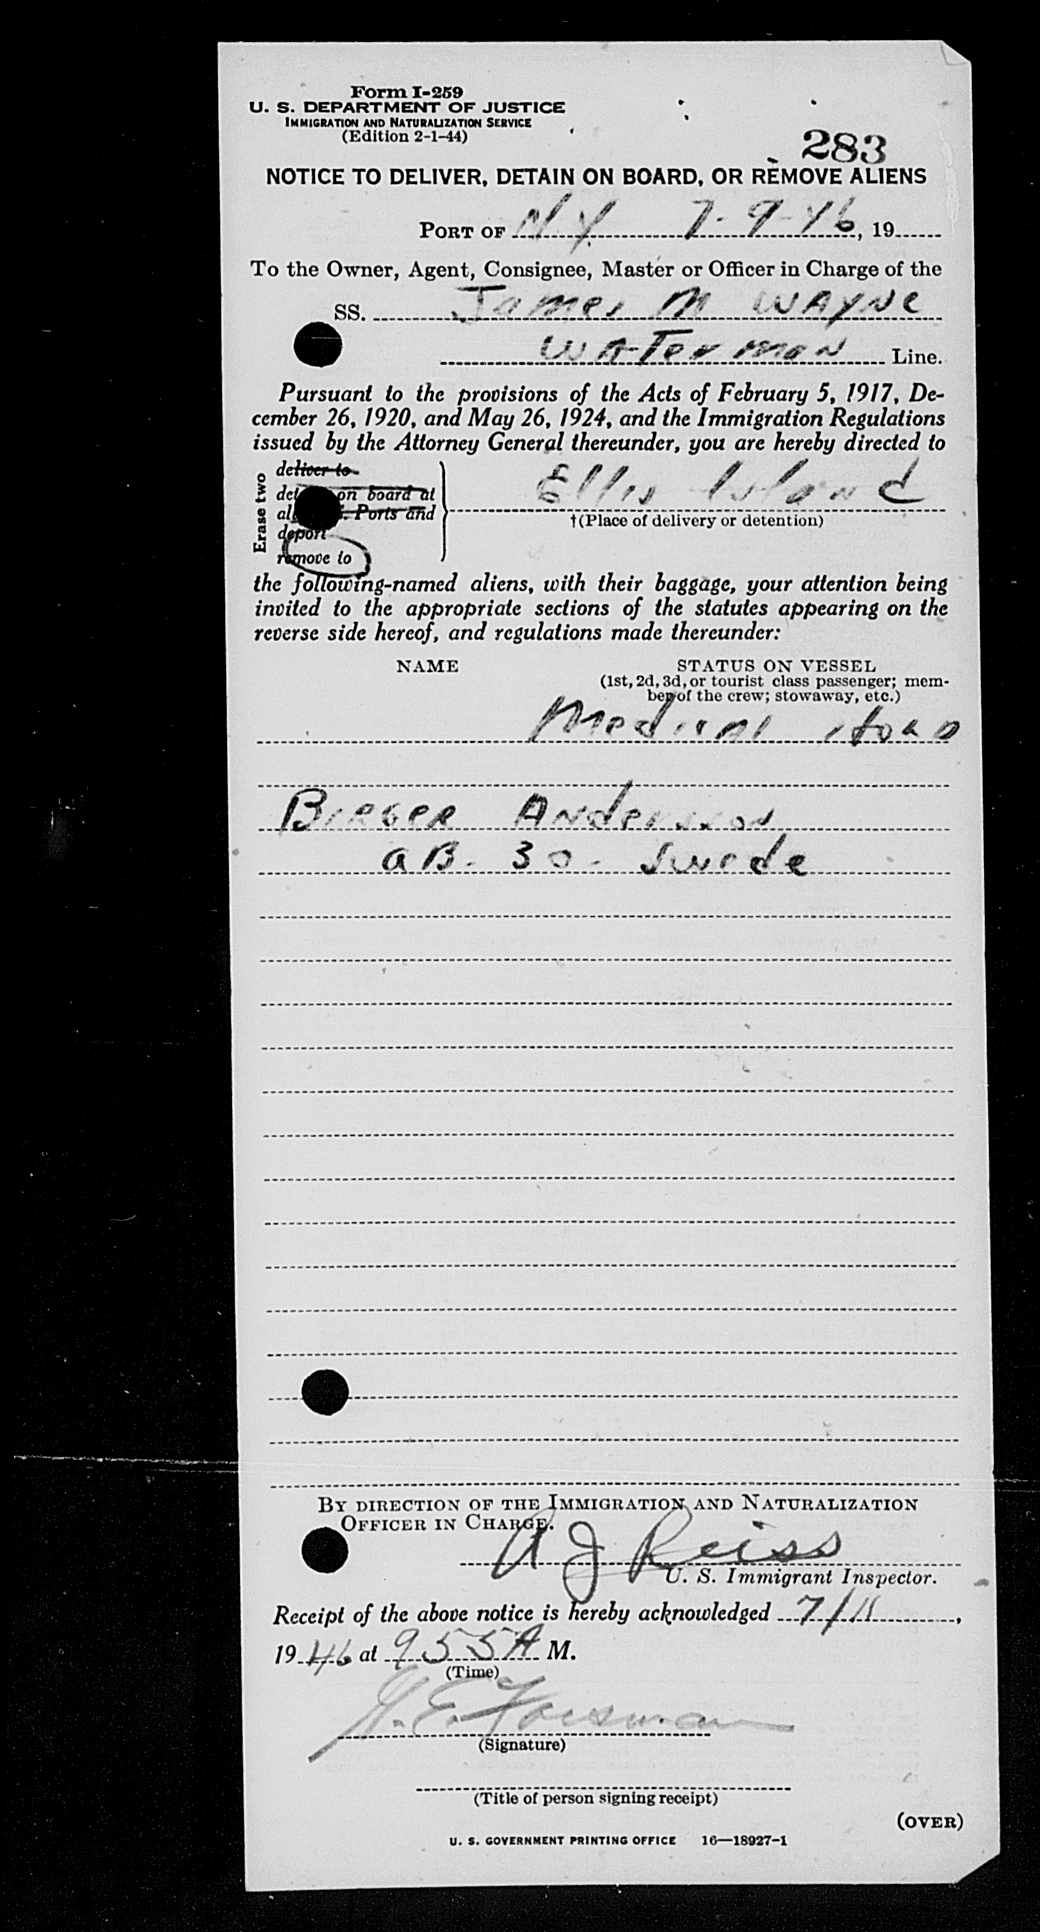 Form I-259
U. S. DEPARTMENT OF JUSTICE
IMMIGRATION AND NATURALIZATION SERVICE
(Edition 2-1-44)
283
NOTICE TO DELIVER, DETAIN ON BOARD, OR REMOVE ALIENS
PORT OF N Y 7-9-46, 19
To the Owner, Agent, Consignee, Master or Officer in Charge of the
SS. James M WAYNE
WATERMAN Line.
Pursuant to the provisions of the Acts of February 5, 1917, De-
cember 26, 1920, and May 26, 1924, and the Immigration Regulations
issued by the Attorney General thereunder, you are hereby directed to
Erase two
deliver to
on board at
Ports and
deport
remove to
Ellis Island
†(Place of delivery or detention)
the following-named aliens, with their baggage, your attention being
invited to the appropriate sections of the statutes appearing on the
reverse side hereof, and regulations made thereunder:
NAME STATUS ON VESSEL
(1st, 2d, 3d, or tourist class passenger; mem-
ber of the crew; stowaway, etc.)
Medical
BIRGER Andersson
aB- 30- Swede
BY DIRECTION OF THE IMMIGRATION AND NATURALIZATION
OFFICER IN CHARGE.
A J Reiss
U. S. Immigrant Inspector.
Receipt of the above notice is hereby acknowledged 7/11,
1946 at 955A M.
(Time)
(Signature)
(Title of person signing receipt)
(OVER)
U. S. GOVERNMENT PRINTING OFFICE 16—18927-1